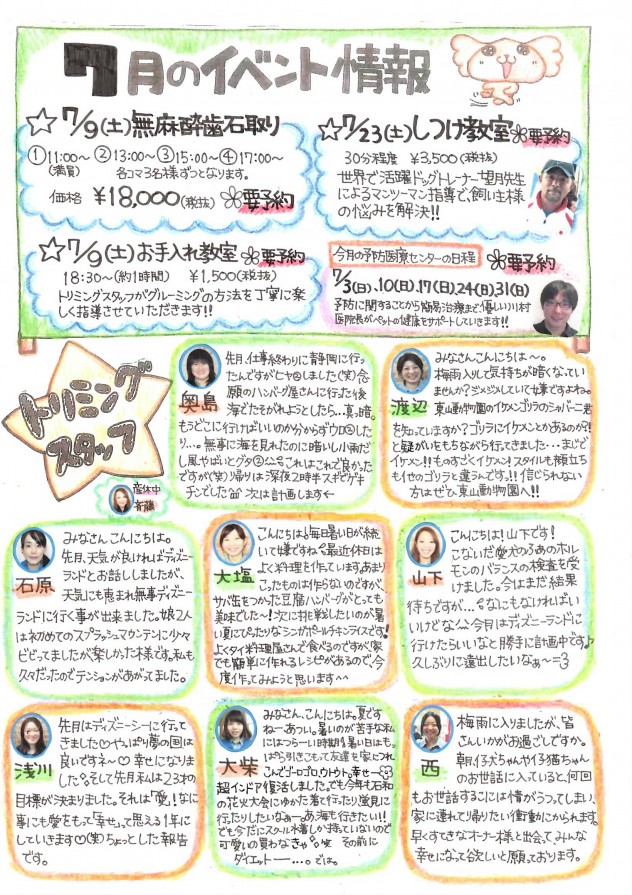 7月のイベント情報
☆7/9(土)無麻酔歯石取り
①11:00〜 ②13:00〜 ③15:00〜 ④17:00〜
(満員) 各コマ3名様ずつとなります。
価格 ¥18,000(税抜) 要予約
☆7/9(土)お手入れ教室 要予約
18:30〜(約1時間) ¥1,500(税抜)
トリミングスタッフがグルーミングの方法を丁寧に楽
しく指導させていただきます!!
☆7/23(土)しつけ教室 要予約
30分程度 ¥3,500(税抜)
世界で活躍ドッグトレーナー望月先生
によるマンツーマン指導で、飼い主様
の悩みを解決!!
今月の予防医療センターの日程
要予約
7/3(日)、10(日)、17(日)、24(日)、31(日)
予防に関することから簡易治療まで優しい川村
医院長がペットの健康をサポートしていきます!!
トリミング
スタッフ
産休中
斉藤
奥島
先月、仕事終わりに静岡に行っ
たんですがヒヤ②しました(笑)念
願のハンバーグ屋さんに行った後
海でたそがれようとしたら…真っ暗。
もうどこに行けばいいのか分からずウロ②した
り…。無事に海を見れたのに暗いし小雨だ
し風やばいとグタ②これはこれで良かった
ですが(笑)帰りは深夜2時半スギでゲキ
チンでした 次は計画します←
渡辺
みなさんこんにちは〜。
梅雨入りして気持ちが暗くなってい
ませんか?ジメジメしていて嫌ですよね。
東山動物園のイケメンゴリラのシャバーニ君
を知っていますか?ゴリラにイケメンとかあるのか!!
と疑がいをもちながら行ってきました・・・まじで
イケメン!!ものすごくイケメン!スタイルも顔立ち
も1せのゴリラと違うんです!!信じられない
方はぜひ東山動物園へ!!
石原
みなさんこんにちは。
先月、天気が良ければディズニー
ランドとお話ししましたが、
天気にも恵まれ無事ディズニー
ランドに行く事が出来ました。娘2人
はネ初めてのスプラッシュマウンテンに少々
ビビってましたが楽しかった様です。私も
久々だったのでテンションがあがってました。
大塩
こんにちは!毎日暑い日が続
いて嫌ですね 最近休日は
よく料理を作っています。あまり
こったものは作らないのですが、
サバ缶をつかった豆腐ハンバーグがとっても
美味でした〜!次に挑戦したいのが暑
い夏にぴったりなシンガポールチキンライスです!
よくタイ料理屋さんで食べるのですが家
でも簡単に作れるレシピがあるので、今
度作ってみようと思います^^
山下
こんにちは!山下です!
こないだ愛犬のふぁのホル
モンのバランスの検査を受
けました。今はまだ結果
待ちですが… なにもなければい
いけどな 今月はディズニーランドに
行けたらいいなと勝手に計画中です♪
久しぶりに遠出したいなぁ〜=3
浅川
先月はディズニーシーに行って
きました♡やっぱり夢の国は
良いですネ〜♡幸せになりま
した。そして先月私は23才の
目標が決まりました。それは「愛」!なに
事にも愛をもって「幸せ」って思える1年に
していきます♡(笑)ちょっとした報告
です。
大柴
みなさん、こんにちは。夏です
ねーあつい。暑いのが苦手な私
にはつらーい時期 暑い日はもっ
ぱら引きこもって友達を家につれ
こんでゴロゴロ、ウトウト。幸せー
超インドア復活しました。でも今年も石和
の花火大会にゆかた着て行ったり、蛍見に
行ったりしたいなぁーあ、海も行きたい!!
でも今だにスクール水着しか持っていないので
可愛いの買わなきゃ その前に
ダイエットー…。では。
西
梅雨に入りましたが、皆
さんいかがお過ごしですか。
朝、仔犬ちゃんや仔猫ちゃん
のお世話に入っていると、何回
もお世話するごとに情がうつってしまい、
家に連れて帰りたい衝動にかられます。
早くすてきなオーナー様と出会って、みんな
幸せになって欲しいと願っております。